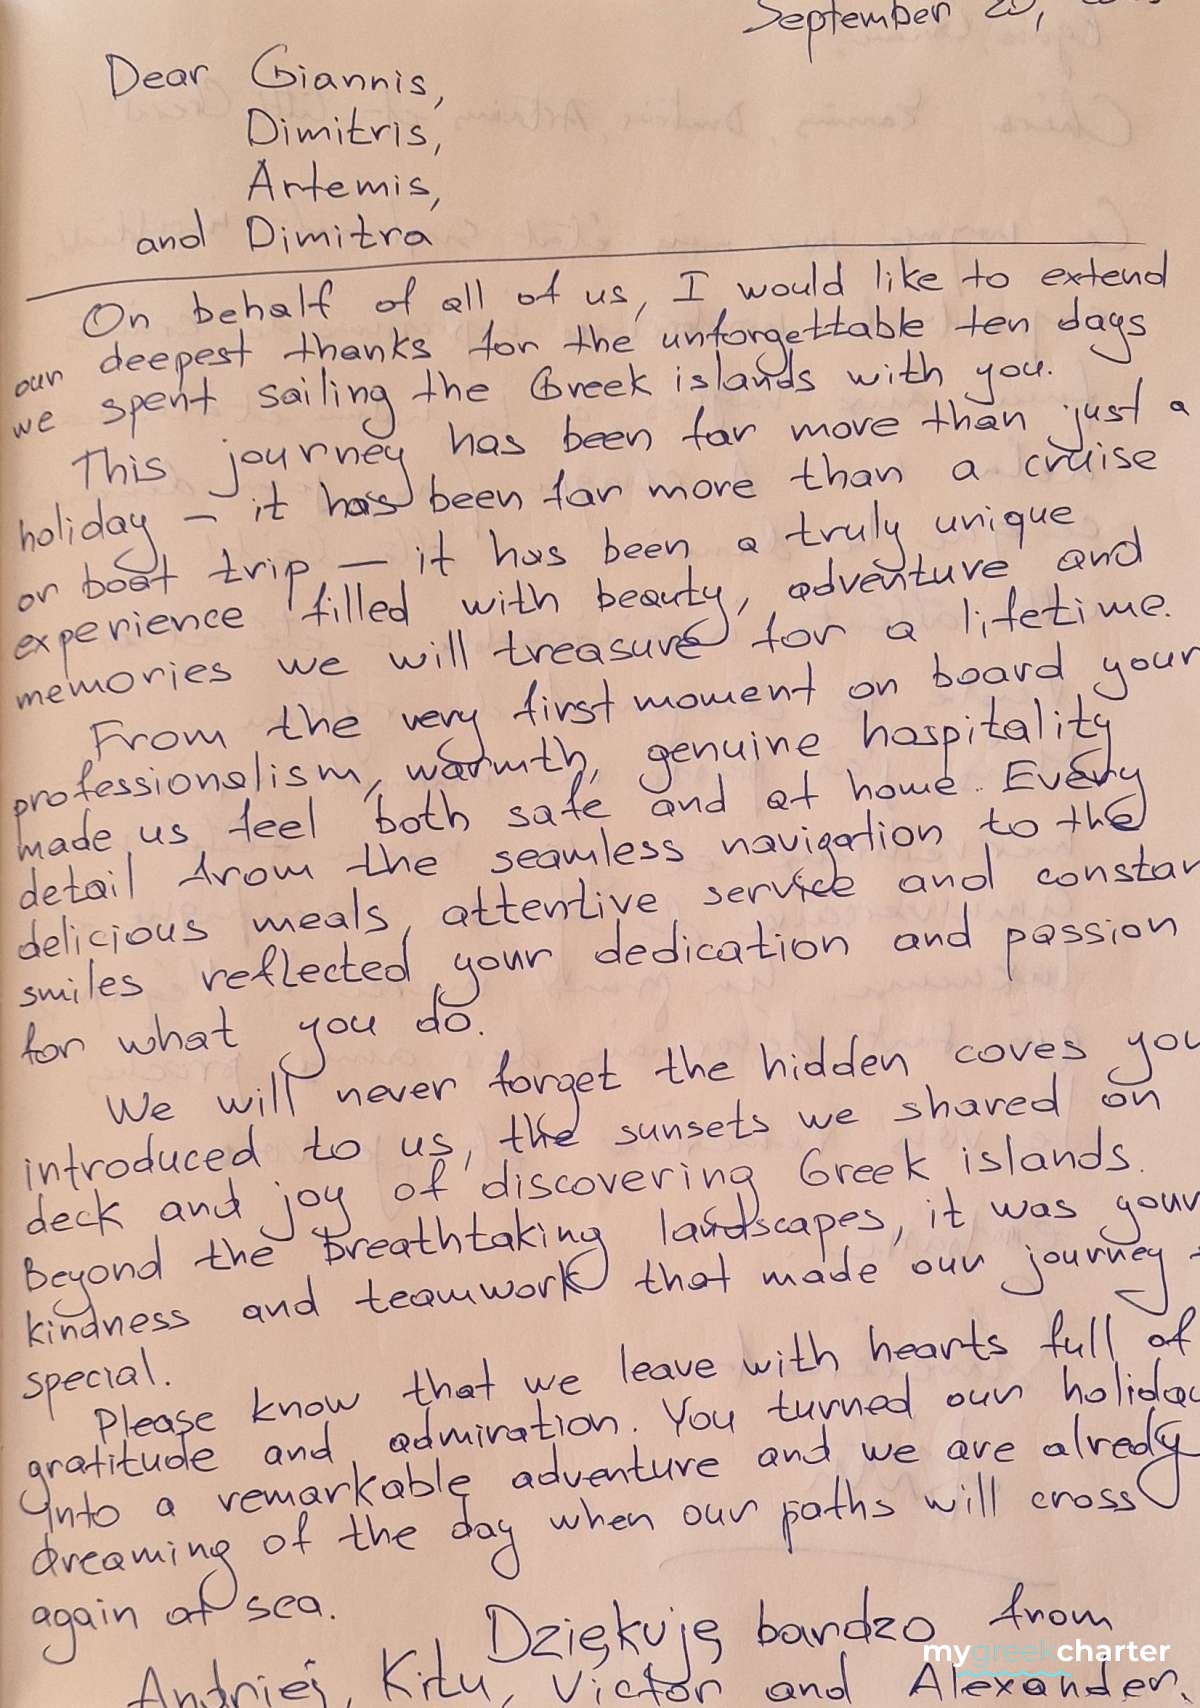 September 20,
Dear Giannis,
Dimitris,
Artemis,
and Dimitra
On behalf of all of us, I would like to extend
our deepest thanks for the unforgettable ten days
we spent sailing the Greek islands with you.
This journey has been far more than just a
holiday – it has been far more than a cruise
or boat trip – it has been a truly unique
experience filled with beauty, adventure and
memories we will treasure for a lifetime.
From the very first moment on board your
professionalism, warmth, genuine hospitality
made us feel both safe and at home. Every
detail from the seamless navigation to the
delicious meals, attentive service and constan
smiles reflected your dedication and passion
for what you do.
We will never forget the hidden coves you
introduced to us, the sunsets we shared on
deck and joy of discovering Greek islands.
Beyond the breathtaking landscapes, it was your
kindness and teamwork that made our journey
special.
Please know that we leave with hearts full of
gratitude and admiration. You turned our holiday
into a remarkable adventure and we are alredy
dreaming of the day when our paths will cross
again at sea.
Dziękuję bardzo from
Andrjej, Kitu, Victor and Alexander.
mygreekcharter